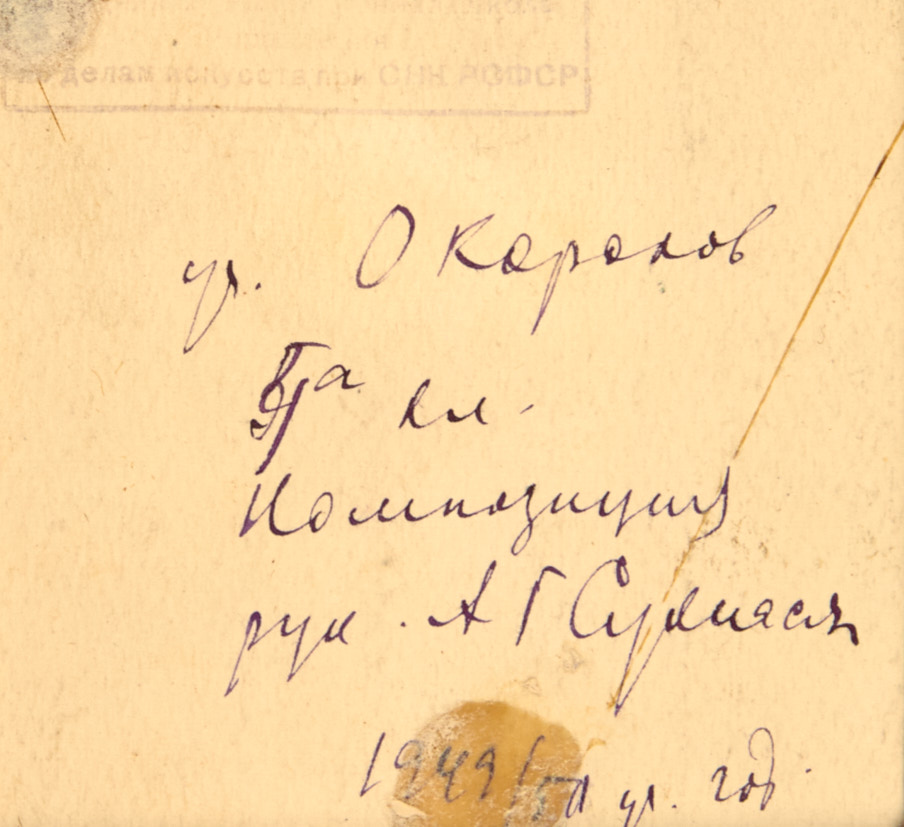 по делам искусств при СНК РСФСР
уч. О Каралов
кл.
Композиция
рук. А Г Сукиасян
1949/50 уч. год.